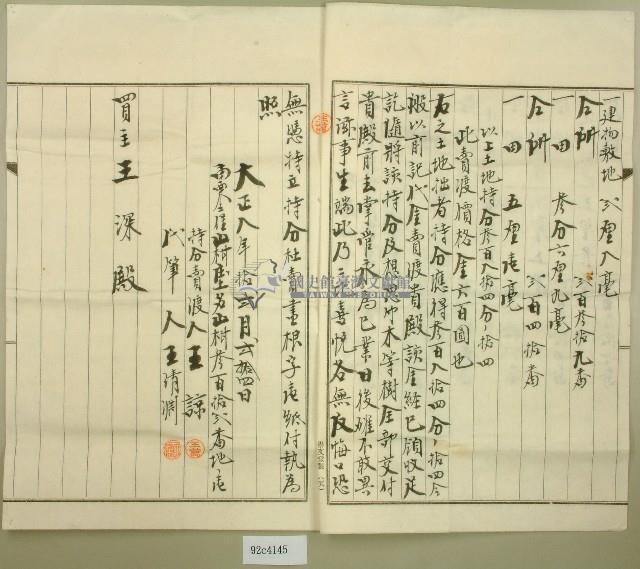 一建物敷地 弍厘八毫
仝所 弍百参拾九番
一田 参分六厘九毫
仝所 弍百四拾番
一田 五厘壱毫
以上土地持分参百八拾四分ノ拾四
此賣渡價格金六百圓也
右之土地拙者持分應得参百八拾四分ノ拾四今
般以前記代金賣渡貴殿該金經已領收足
訖隨將該持分及根 竹木等樹全部交付
貴殿前去掌管永為己業日後雖不敢異
言滋事生端此乃二比喜悅各無反悔口恐
無憑特立持分杜賣盡根字壱紙付執為
照
大正八年拾弍月弍拾四日
山樹参百拾弍番地ノ壱
持分賣渡人王諒
代筆人王清淵
買主王深殿
國史館臺灣文獻館
92c4145